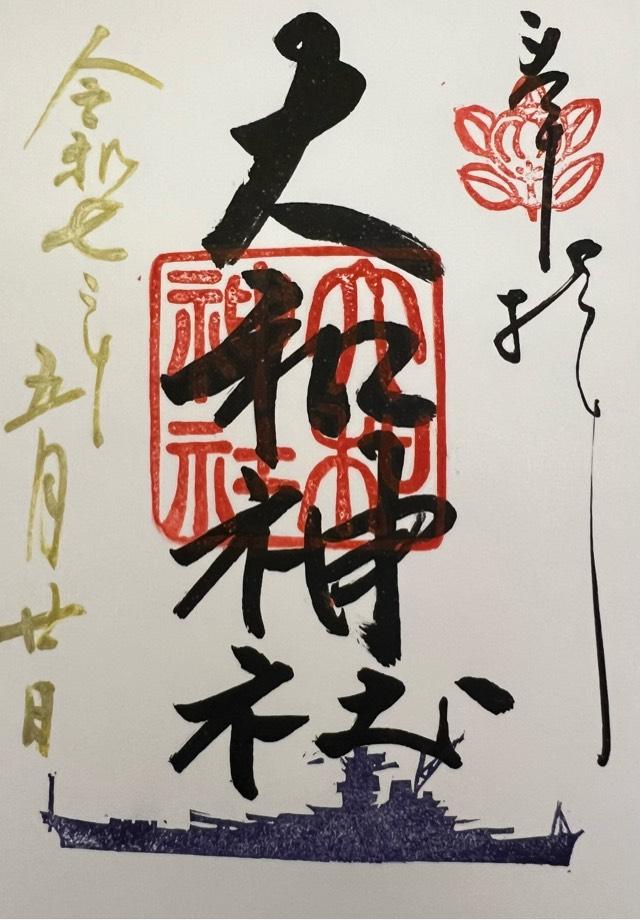 奉拝
大和神社
大和神社
令和七年
五月廿日